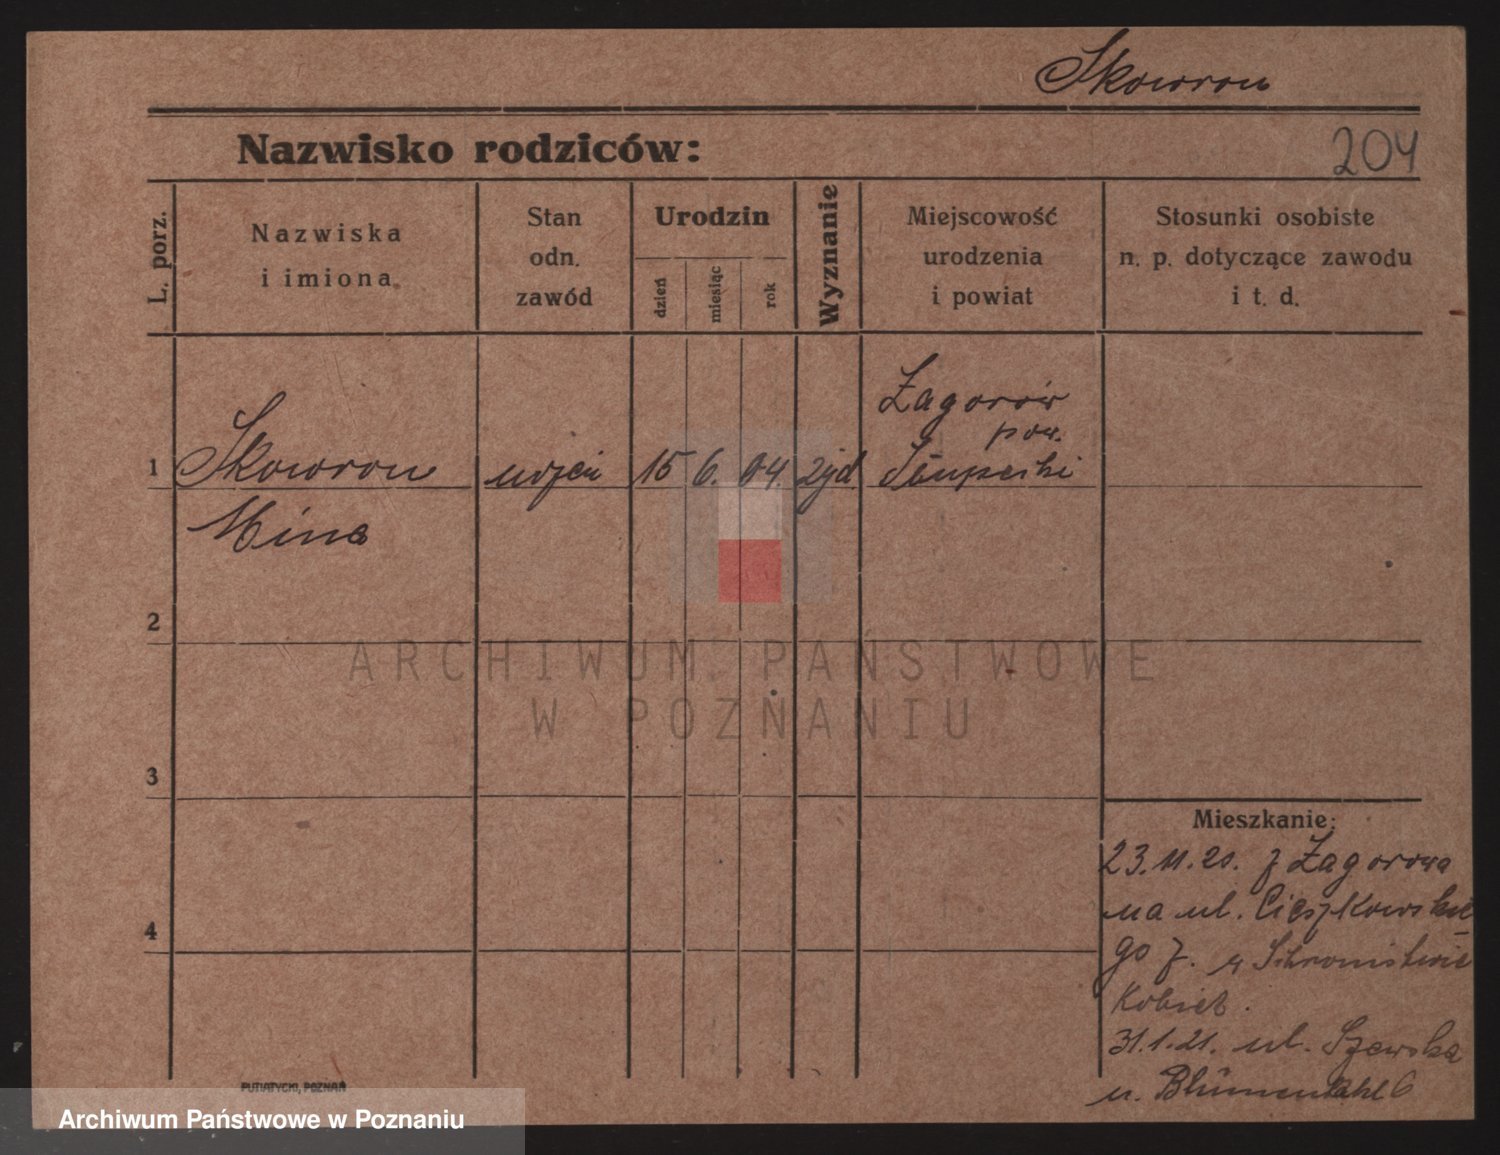 Skowron
Nazwisko rodziców:
204
L. porz.
Nazwiska
i imiona
Stan
odn.
zawód
Urodzin
dzień
miesiąc
rok
Wyznanie
Miejscowość
urodzenia
i powiat
Stosunki osobiste
n. p. dotyczące zawodu
i t. d.
1
Skowron
Mina
15
6.
04.
żyd
Zagorów
pow.
Słupecki
2
3
4
ARCHIWUM PAŃSTWOWE
W POZNANIU
Mieszkanie:
23.11.20. z Zagorowa
na ul. Cieszkowskie
go 7. w Schronistwie
Kobiet.
31.1.21. ul. Szewska
u. Blumenthal 6
PUTIATYCKI, POZNAŃ
Archiwum Państwowe w Poznaniu